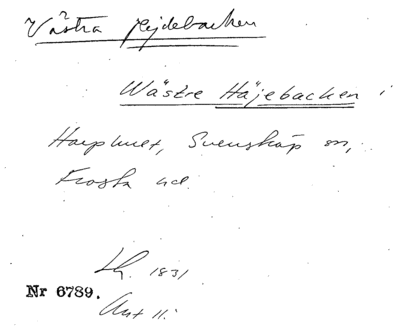 Västra Hejdebacken
Wästre Häjebacken i
Harphult, Svensköp sn,
Frosta hd.
Lh. 1831
Nr 6789.
Akt 11.